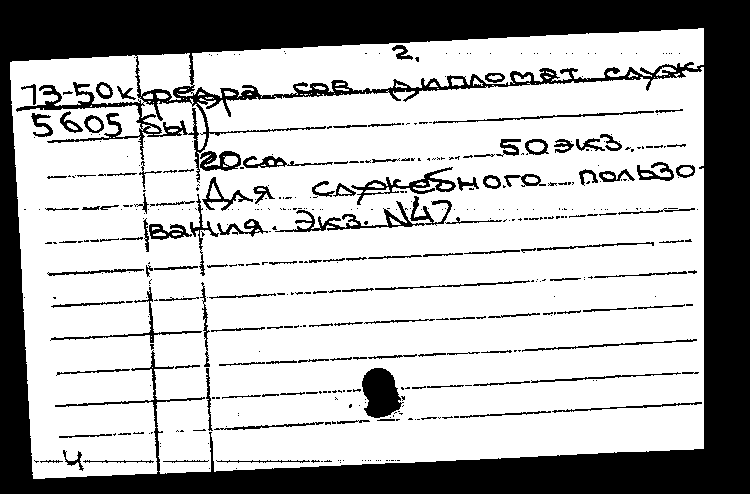 2.
73-50к федра сов. дипломат. служ-
5605 бы).
20 cm. 50 экз.
Для служебного пользо-
вания. Экз. №47.
ч